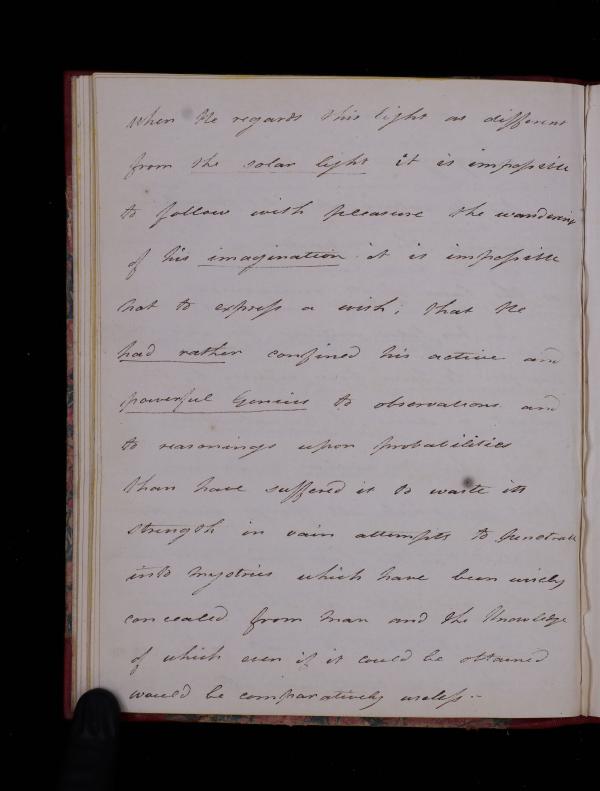 when He regards this light as different
from the solar light it is impossible
to follow with pleasure the wandering
of his imagination it is impossible
not to express a wish; that He
had rather confined his active and
powerful Genius to observations and
to reasonings upon probabilities
than have suffered it to waste its
strength in vain attempts to penetrate
into mysteries which have been wisely
concealed from man and the Knowledge
of which even if it could be obtained
would be comparatively useless.-